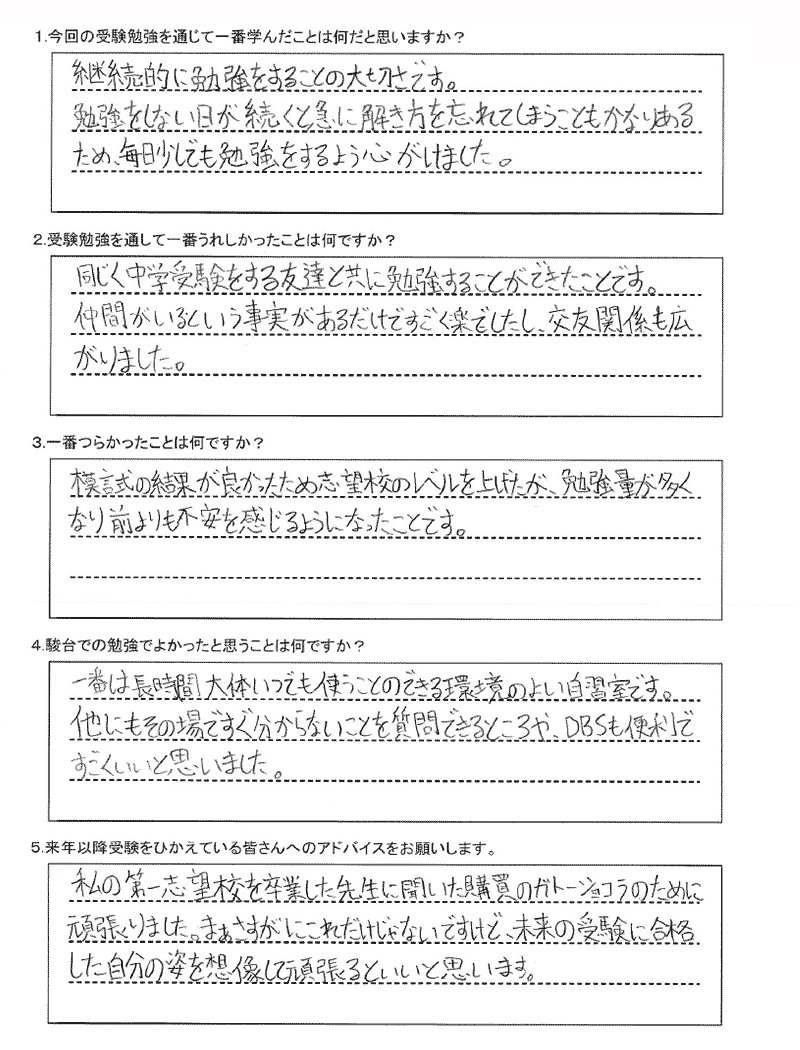 1.今回の受験勉強を通じて一番学んだことは何だと思いますか？
継続的に勉強をすることの大切さです。
勉強をしない日が続くと急に解き方を忘れてしまうこともかなりある
ため、毎日少しでも勉強をするよう心がけました。
2.受験勉強を通して一番うれしかったことは何ですか？
同じく中学受験をする友達と共に勉強することができたことです。
仲間がいるという事実があるだけですごく楽でしたし、交友関係も広
がりました。
3.一番つらかったことは何ですか？
模試の結果が良かったため志望校のレベルを上げたが、勉強量が多く
なり前よりも不安を感じるようになったことです。
4.駿台での勉強でよかったと思うことは何ですか？
一番は長時間大体いつでも使うことのできる環境のよい自習室です。
他にもその場ですぐ分からないことを質問できるところや、DBSも便利で
すごくいいと思いました。
5.来年以降受験をひかえている皆さんへのアドバイスをお願いします。
私の第一志望校を卒業した先生に聞いた購買のガトーショコラのために
頑張りました。まぁさすがにこれだけじゃないですけど、未来の受験に合格
した自分の姿を想像して頑張るといいと思います。